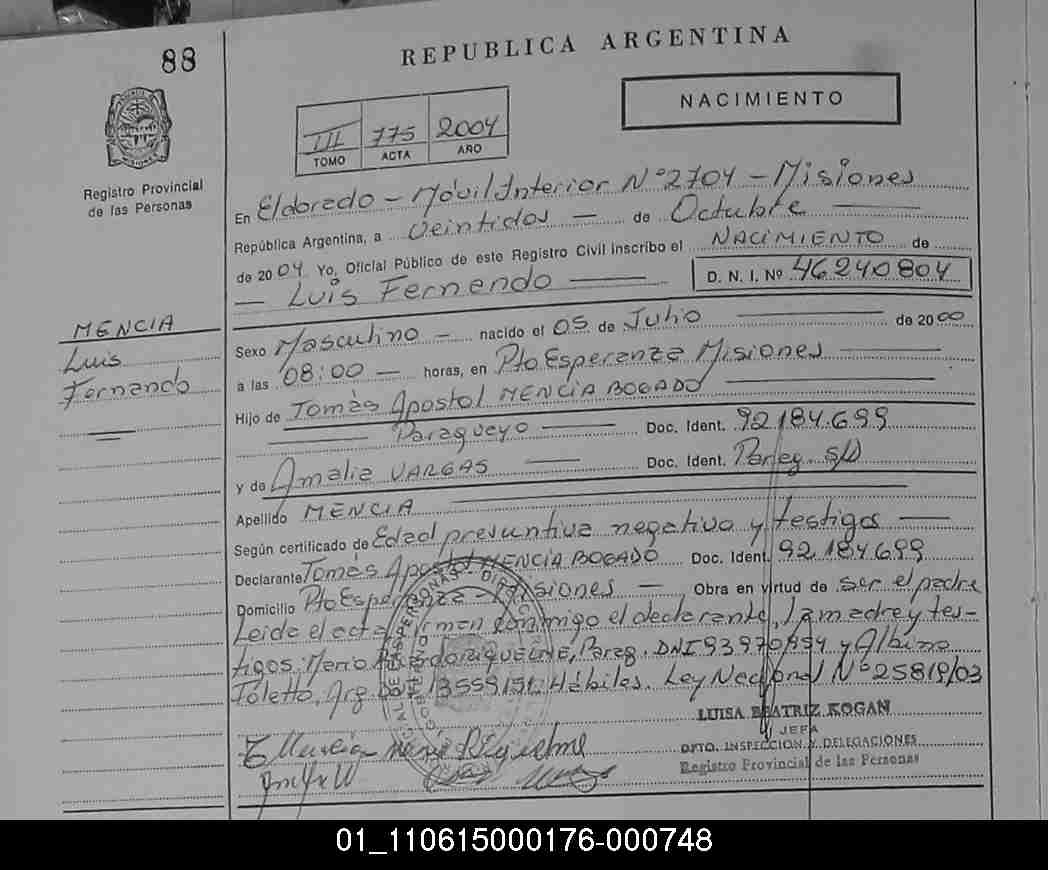 88
REPUBLICA ARGENTINA
NACIMIENTO
III 775 2004
TOMO ACTA AÑO
Registro Provincial
de las Personas
En Eldorado - Móvil Interior Nº 2704 - Misiones
República Argentina, a Veintidos — de Octubre
de 2004 Yo, Oficial Público de este Registro Civil inscribo el NACIMIENTO de
— Luis Fernando — D. N. I. Nº 46240804
MENCIA
Luis
Fernando
Sexo Masculino — nacido el 05 de Julio — de 2000
a las 08:00 — horas, en Pto Esperanza Misiones
Hijo de Tomás Apostol MENCIA BOGADO
Paragueyo — Doc. Ident. 92184.699
y de Amalia VARGAS — Doc. Ident. Parag. S/D
Apellido MENCIA
Según certificado de Edad presuntiva negativo y testigos —
Declarante Tomás Apostol MENCIA BOGADO Doc. Ident. 92.184.699
Domicilio Pto Esperanza - Misiones — Obra en virtud de ser el padre
Leida el acta firman conmigo el declarante, la madre y tes-
tigos, Mario RIQUELME, Parag. DNI 93970954 y Albino
Toletto, Arg. DNI 13559151. Hábiles. Ley Nacional Nº 25819/03
LUISA BEATRIZ KOGAN
JEFA
DPTO. INSPECCION Y DELEGACIONES
Registro Provincial de las Personas
01_110615000176-000748